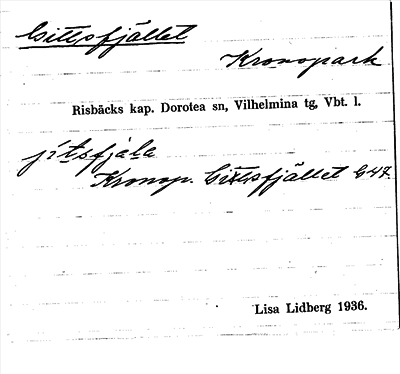 Gittsfjället
Kronopark
Risbäcks kap. Dorotea sn, Vilhelmina tg, Vbt. l.
jitsfjäla
Kronop. Gittsfjället G47.
Lisa Lidberg 1936.